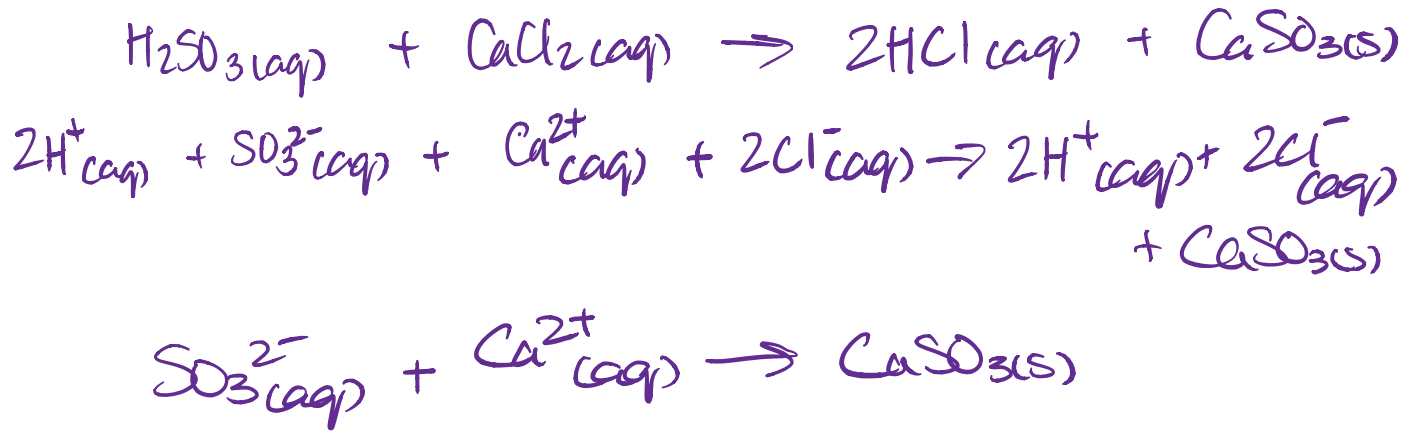 H₂SO₃(aq) + CaCl₂(aq) → 2HCl(aq) + CaSO₃(s)
2H⁺(aq) + SO₃²⁻(aq) + Ca²⁺(aq) + 2Cl⁻(aq) → 2H⁺(aq) + 2Cl⁻(aq)
+ CaSO₃(s)
SO₃²⁻(aq) + Ca²⁺(aq) → CaSO₃(s)